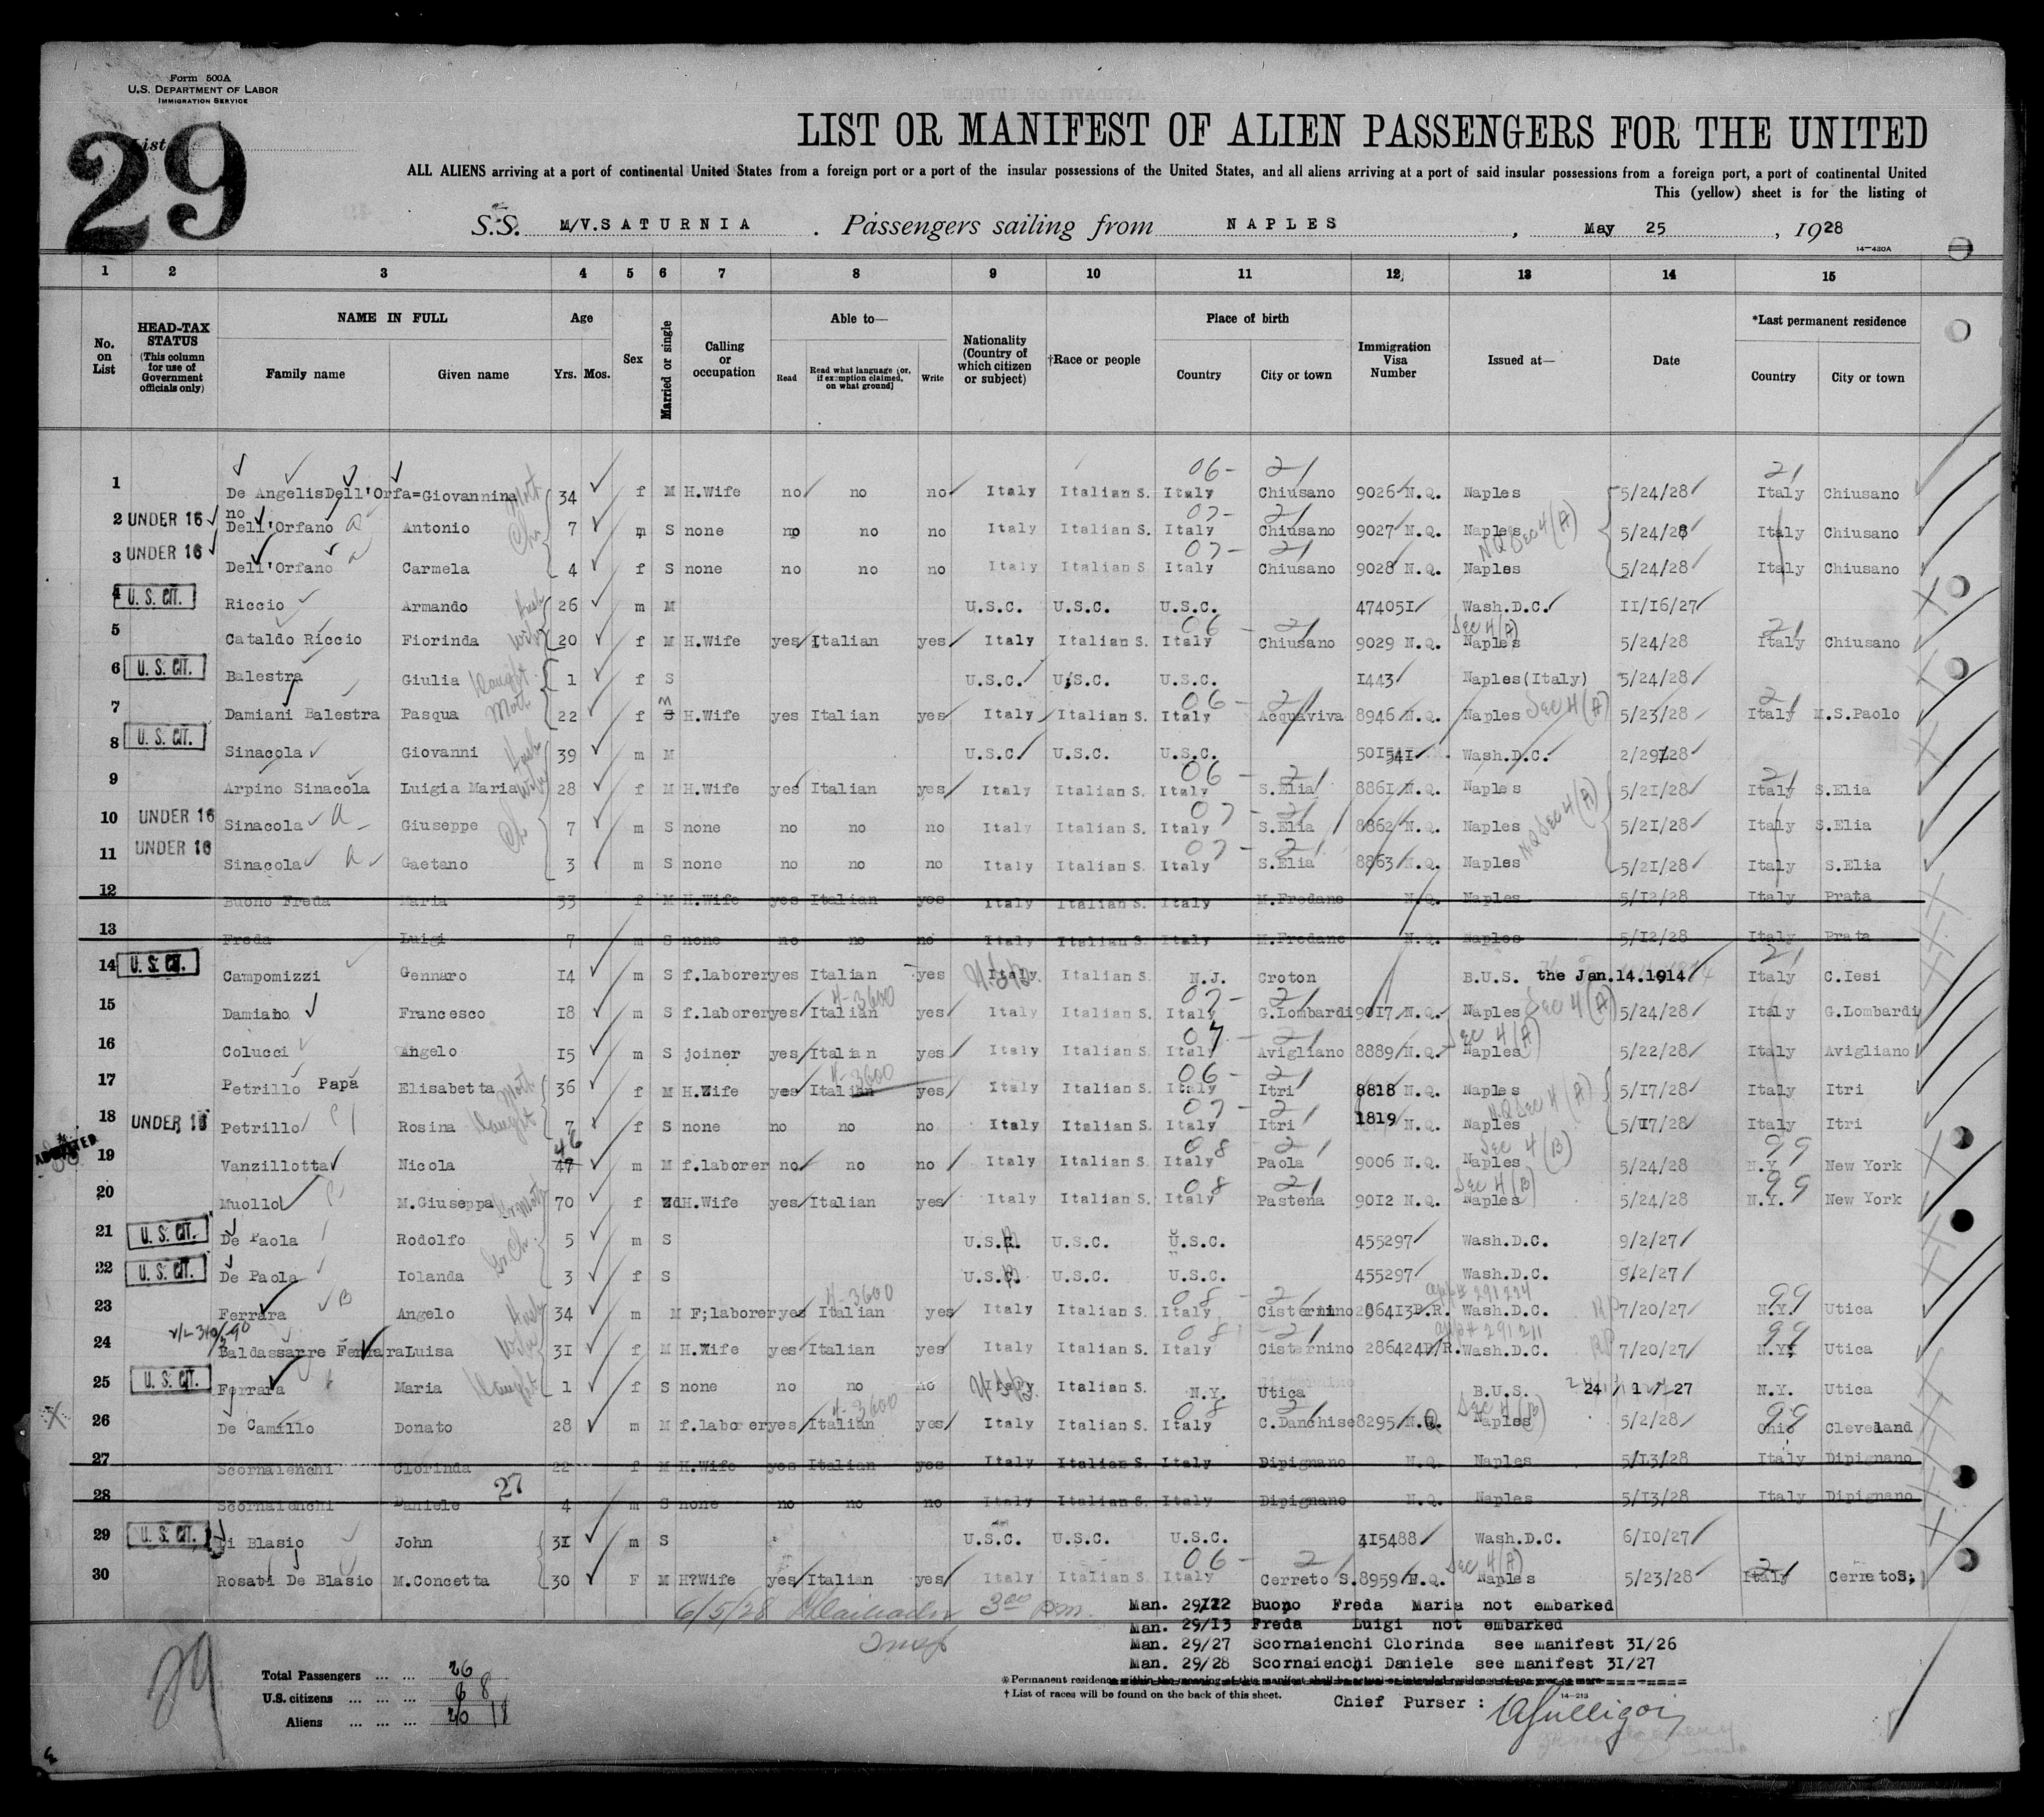 Form 500A
U.S. DEPARTMENT OF LABOR
IMMIGRATION SERVICE
List
29
LIST OR MANIFEST OF ALIEN PASSENGERS FOR THE UNITED
ALL ALIENS arriving at a port of continental United States from a foreign port or a port of the insular possessions of the United States, and all aliens arriving at a port of said insular possessions from a foreign port, a port of continental United
This (yellow) sheet is for the listing of
S.S. M/V. SATURNIA . Passengers sailing from NAPLES , May 25 , 1928
14-430A
1 2 3 4 5 6 7 8 9 10 11 12 13 14 15
No. on List
HEAD-TAX STATUS (This column for use of Government officials only)
NAME IN FULL
Family name Given name
Age
Yrs. Mos.
Sex
Married or single
Calling or occupation
Able to—
Read Read what language (or, if exemption claimed, on what ground) Write
Nationality (Country of which citizen or subject)
†Race or people
Place of birth
Country City or town
Immigration Visa Number
Issued at—
Date
*Last permanent residence
Country City or town
06- 21 21
1 De Angelis Dell'Orfa= Giovannina Moth 34 f M H.Wife no no no Italy Italian S. Italy Chiusano 9026 N.Q. Naples 5/24/28 Italy Chiusano
no
07- 21
2 UNDER 16 Dell'Orfano a Antonio Ch 7 m S none no no no Italy Italian S. Italy Chiusano 9027 N.Q. Naples NQ Sec 4 (A) 5/24/28 Italy Chiusano
07- 21
3 UNDER 16 Dell'Orfano a Carmela 4 f S none no no no Italy Italian S. Italy Chiusano 9028 N.Q. Naples 5/24/28 Italy Chiusano
4 U.S. CIT. Riccio Armando Husb 26 m M U.S.C. U.S.C. U.S.C. 474051 Wash.D.C. 11/16/27
06- 21 Sec 4 (A) 21
5 Cataldo Riccio Fiorinda Wife 20 f M H.Wife yes Italian yes Italy Italian S. Italy Chiusano 9029 N.Q. Naples 5/24/28 Italy Chiusano
6 U.S. CIT. Balestra Giulia Daught 1 f S U.S.C. U.S.C. U.S.C. 1443 Naples(Italy) 5/24/28
06- 21 21
7 Damiani Balestra Pasqua Moth 22 f M S H.Wife yes Italian yes Italy Italian S. Italy Acquaviva 8946 N.Q. Naples Sec 4 (A) 5/23/28 Italy M.S.Paolo
8 U.S. CIT. Sinacola Giovanni Husb 39 m M U.S.C. U.S.C. U.S.C. 501541 Wash.D.C. 2/29/28
06- 21 21
9 Arpino Sinacola Luigia Maria Wife 28 f M H.Wife yes Italian yes Italy Italian S. Italy S.Elia 8861 N.Q. Naples 5/21/28 Italy S.Elia
07- 21
10 UNDER 16 Sinacola a Giuseppe Ch 7 m S none no no no Italy Italian S. Italy S.Elia 8862 N.Q. Naples NQ Sec 4 (A) 5/21/28 Italy S.Elia
07- 21
11 UNDER 16 Sinacola a Gaetano 3 m S none no no no Italy Italian S. Italy S.Elia 8863 N.Q. Naples 5/21/28 Italy S.Elia
12 Buono Freda Maria 33 f M H.Wife yes Italian yes Italy Italian S. Italy M.Fredano N.Q. Naples 5/12/28 Italy Prata
13 Freda Luigi 7 m S none no no no Italy Italian S. Italy M.Fredano N.Q. Naples 5/12/28 Italy Prata
21
14 U.S. CIT. Campomizzi Gennaro 14 m S f.laborer yes Italian yes Italy Italian S. N.J. Croton B.U.S. the Jan.14.1914 Italy C.Iesi
4-3600 07- 21
15 Damiano Francesco 18 m S f.laborer yes Italian yes Italy Italian S. Italy G.Lombardi 9017 N.Q. Naples Sec 4 (A) 5/24/28 Italy G.Lombardi
07 21 Sec 4 (A)
16 Colucci Angelo 15 m S joiner yes Italian yes Italy Italian S. Italy Avigliano 8889 N.Q. Naples 5/22/28 Italy Avigliano
4-3600 06- 21
17 Petrillo Papa Elisabetta Moth 36 f M H.Wife yes Italian yes Italy Italian S. Italy Itri 8818 N.Q. Naples NQ Sec 4 (A) 5/17/28 Italy Itri
07- 21
18 UNDER 16 Petrillo Rosina Daught 7 f S none no no no Italy Italian S. Italy Itri 1819 N.Q. Naples 5/17/28 Italy Itri
ADMITTED 46 08 21 Sec 4 (B) 99
19 Vanzillotta Nicola 47 m M f.laborer no no no Italy Italian S. Italy Paola 9006 N.Q. Naples 5/24/28 N.Y. New York
08 21 Sec 4 (B) 99
20 Muollo M.Giuseppa Gr.Moth 70 f Wd H.Wife yes Italian yes Italy Italian S. Italy Pastena 9012 N.Q. Naples 5/24/28 N.Y. New York
21 U.S. CIT. De Paola Rodolfo Gr.Ch. 5 m S U.S.C. U.S.C. U.S.C. 455297 Wash.D.C. 9/2/27
22 U.S. CIT. De Paola Iolanda 3 f S U.S.C. U.S.C. U.S.C. 455297 Wash.D.C. 9/2/27
4-3600 08- 21 app# 291224 99
23 Ferrara B Angelo Husb 34 m M F;laborer yes Italian yes Italy Italian S. Italy Cisternino 286413 P.R. Wash.D.C. RP 7/20/27 N.Y. Utica
08 21 app# 291211 99
24 Baldassarre Ferrara Luisa Wife 31 f M H.Wife yes Italian yes Italy Italian S. Italy Cisternino 286424 P/R. Wash.D.C. RP 7/20/27 N.Y. Utica
25 U.S. CIT. Ferrara Maria Daught 1 f S none no no no Italy Italian S. N.Y. Utica B.U.S. 24 1 27 N.Y. Utica
4-3600 08 21 Sec 4 (B) 99
26 De Camillo Donato 28 m M f.laborer yes Italian yes Italy Italian S. Italy C.Danchise 8295 N.Q. Naples 5/2/28 Ohio Cleveland
27 Scornaienchi Clorinda 22 f M H.Wife yes Italian yes Italy Italian S. Italy Dipignano N.Q. Naples 5/13/28 Italy Dipignano
28 Scornaienchi Daniele 27 4 m S none no no no Italy Italian S. Italy Dipignano N.Q. Naples 5/13/28 Italy Dipignano
29 U.S. CIT. Di Blasio John 31 m S U.S.C. U.S.C. U.S.C. 415488 Wash.D.C. 6/10/27
06- 21 Sec 4 (A) 21
30 Rosati De Blasio M.Concetta 30 F M H?Wife yes Italian yes Italy Italian S. Italy Cerreto S. 8959 N.Q. Naples 5/23/28 Italy CerretoS.
6/5/28 3 00 pm.
Insp
Man. 29/12 Buono Freda Maria not embarked
Man. 29/13 Freda Luigi not embarked
Man. 29/27 Scornaienchi Clorinda see manifest 31/26
Man. 29/28 Scornaienchi Daniele see manifest 31/27
29
Total Passengers ... ... 26
U.S. citizens ... ... ... 6 8
Aliens ... ... ... 20 18
* Permanent residence within the meaning of this manifest shall be actual or intended residence of one year or more
† List of races will be found on the back of this sheet.
14-213
Chief Purser :